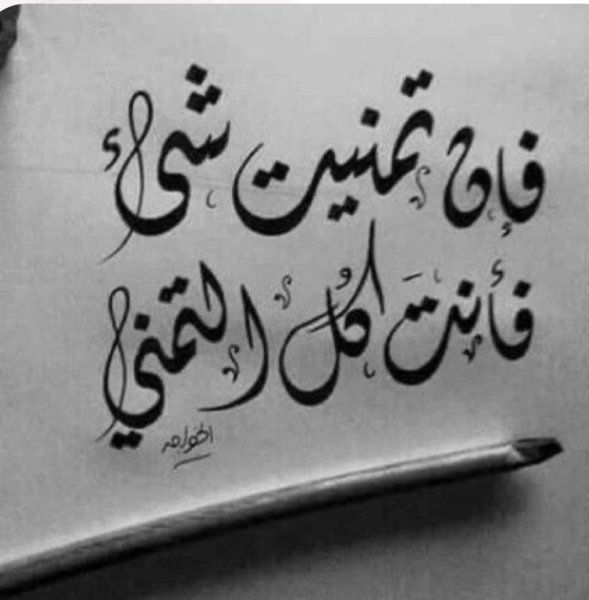 فإن تمنيت شيء
فأنت كل التمني